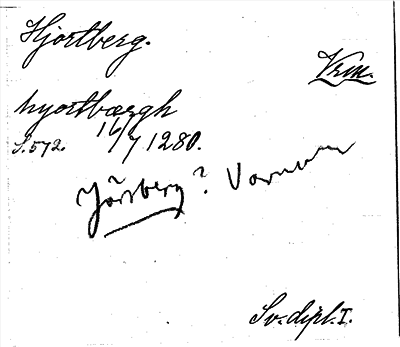 Hjortberg.
Vrm.
hyortbærgh
S. 572. 16/7 1280.
Jörsberg?
Sv. dipl. I.